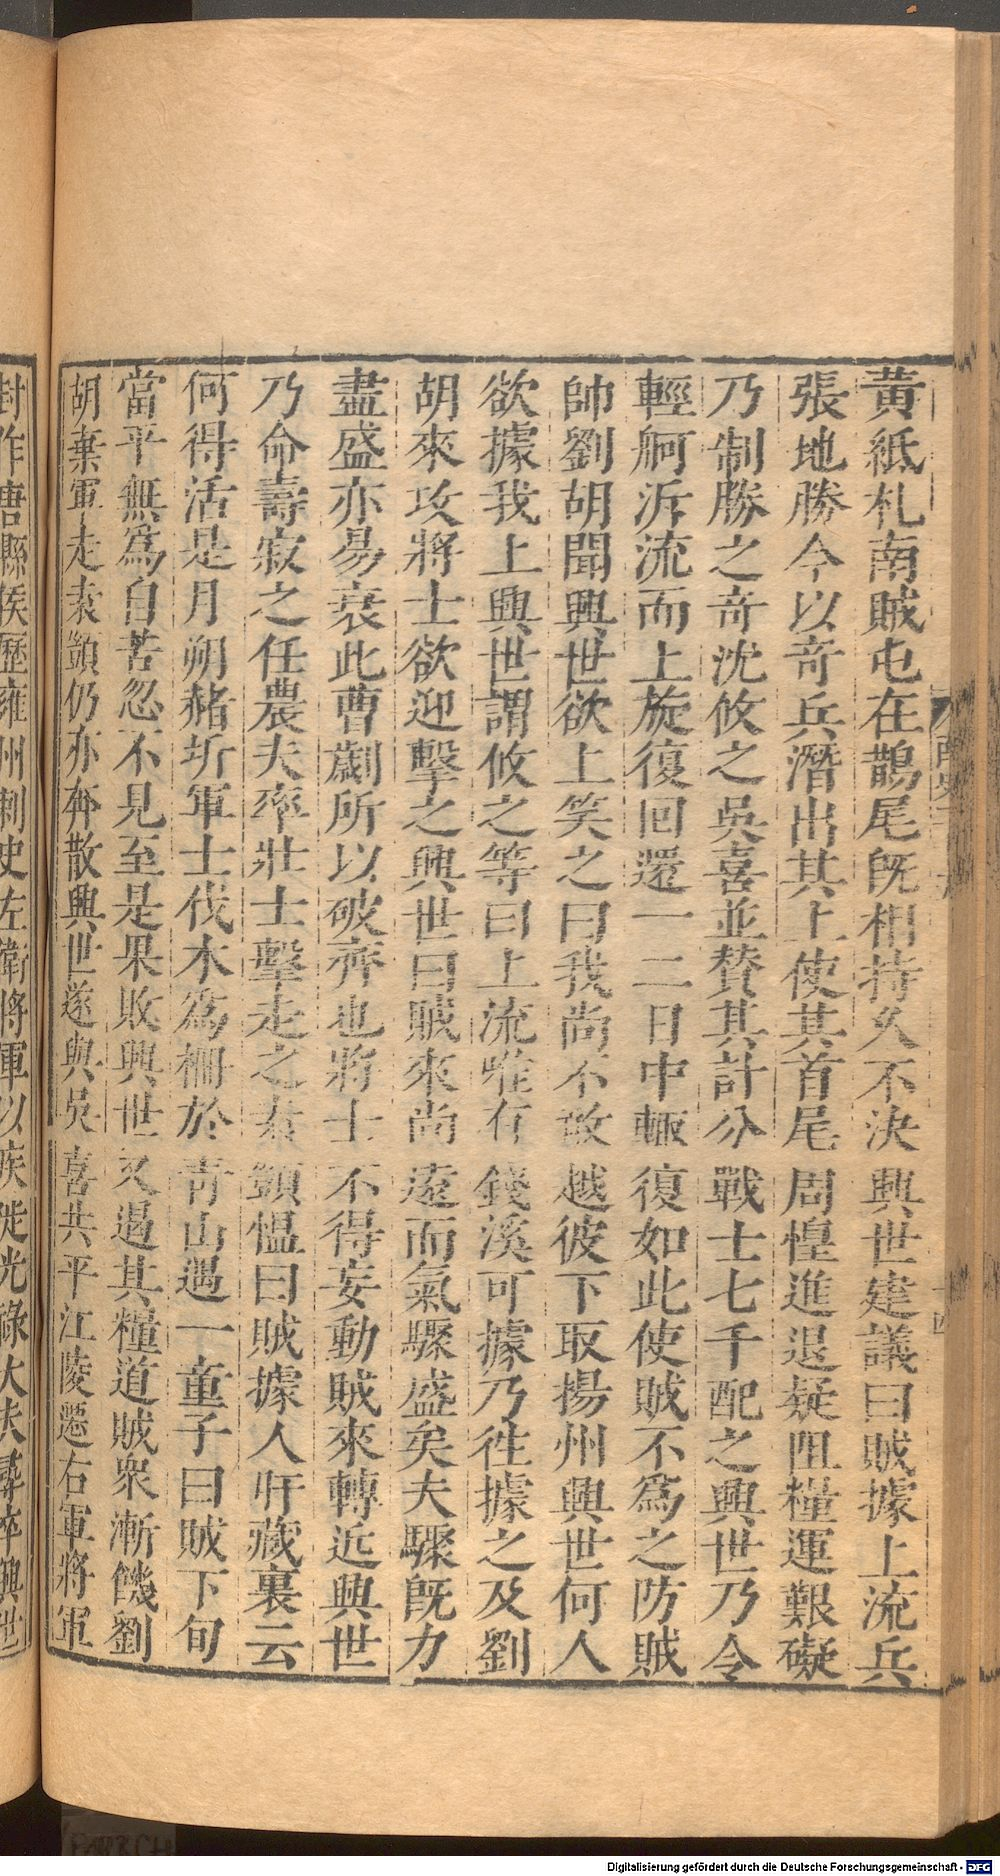 黃紙札南賊屯在鵲尾旣相持久不決興世建議曰賊據上流兵
張地勝今以奇兵潛出其上使其首尾周惶進退疑阻糧運艱礙
乃制勝之奇沈攸之吳喜並賛其計分戰士七千配之興世乃令
輕舸泝流而上旋復回還一二日中輒復如此使賊不爲之防賊
帥劉胡聞興世欲上笑之曰我尚不敢越彼下取揚州興世何人
欲據我上興世謂攸之等曰上流唯有錢溪可據乃徃據之及劉
胡來攻將士欲迎擊之興世曰賊來尚遠而氣驟盛矣夫驟旣力
盡盛亦易衰此曹劌所以破齊也將士不得妄動賊來轉近興世
乃命壽寂之任農夫率壯士擊走之袁顗愠曰賊據人肝藏裏云
何得活是月朔赭圻軍士伐木爲柵於靑山遇一童子曰賊下旬
當平無爲自苦忽不見至是果敗興世又遏其糧道賊衆漸饑劉
胡棄軍走袁顗仍亦奔散興世遂與吳喜共平江陵遷右軍將軍
封作唐縣侯歷雍州刺史左衛將軍以疾徙光祿大夫尋卒興世
Digitalisierung gefördert durch die Deutsche Forschungsgemeinschaft - DFG